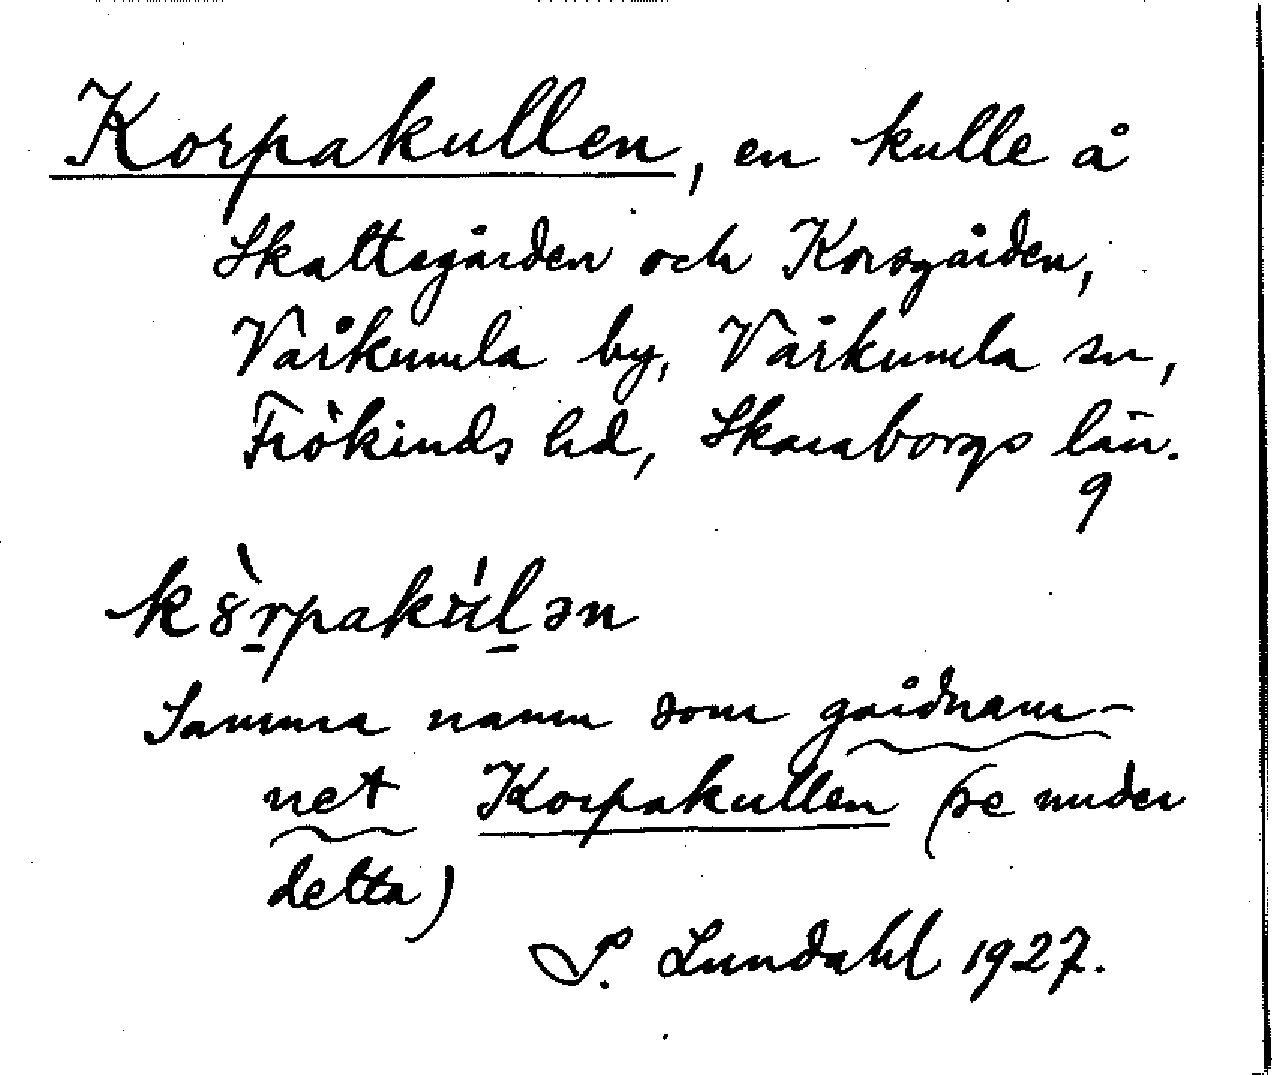 Korpakullen, en kulle å
Skattegården och Korsgården,
Vårkumla by, Vårkumla sn,
Frökinds hd, Skaraborgs län.
9
k8̀rpakúlən
Samma namn som gårdnam-
net Korpakullen (se under
detta)
I. Lundahl 1927.